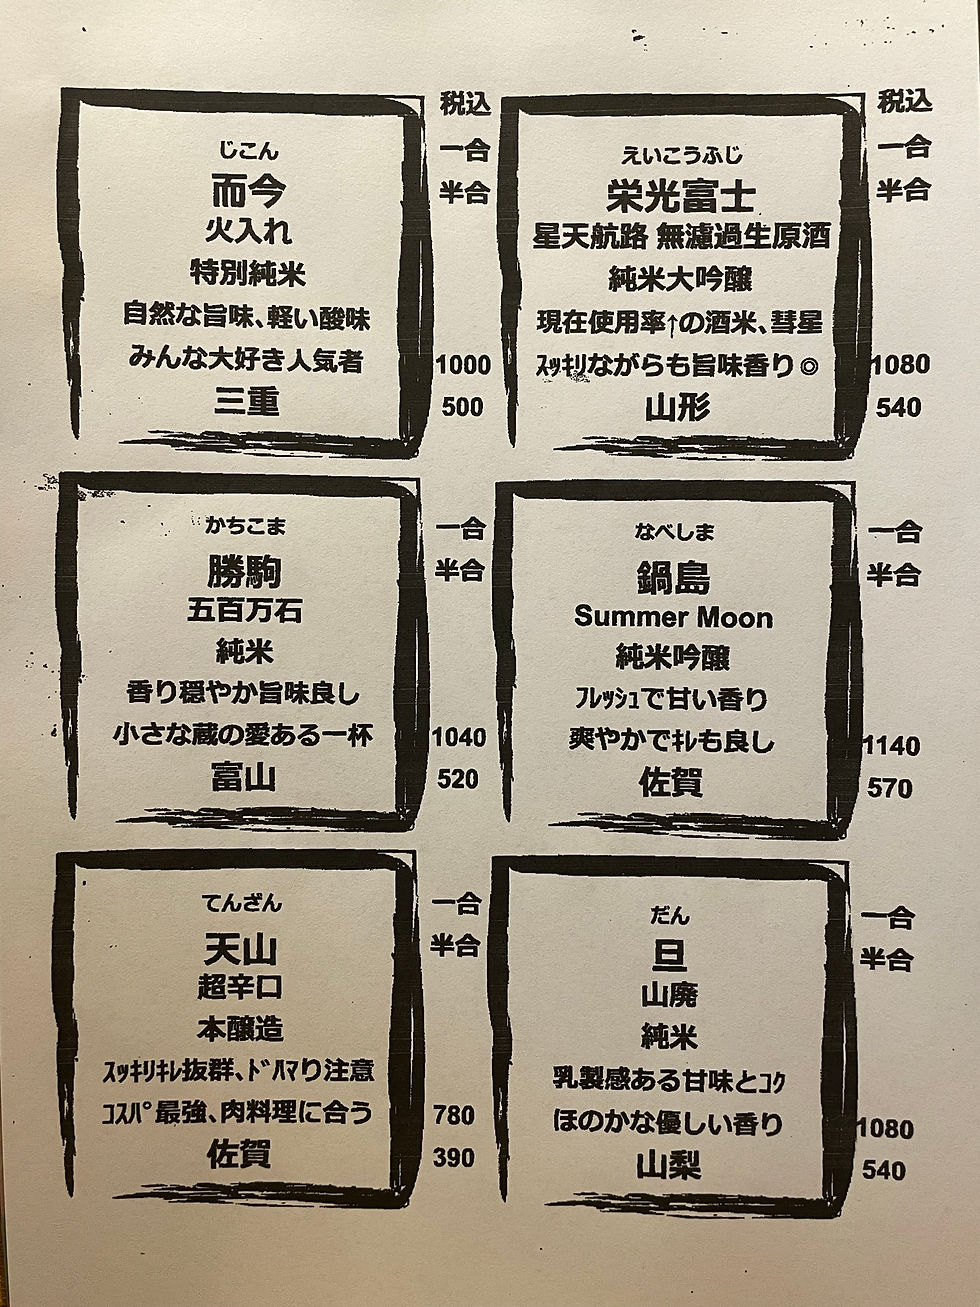 税込
じこん
一合
而今
半合
火入れ
特別純米
自然な旨味、軽い酸味
みんな大好き人気者
1000
三重
500
税込
えいこうふじ
一合
栄光富士
半合
星天航路 無濾過生原酒
純米大吟醸
現在使用率↑の酒米、彗星
ｽｯｷﾘながらも旨味香り◎
1080
山形
540
かちこま
一合
勝駒
半合
五百万石
純米
香り穏やか旨味良し
小さな蔵の愛ある一杯
1040
富山
520
なべしま
一合
鍋島
半合
Summer Moon
純米吟醸
ﾌﾚｯｼｭで甘い香り
爽やかでｷﾚも良し
1140
佐賀
570
てんざん
一合
天山
半合
超辛口
本醸造
ｽｯｷﾘｷﾚ抜群、ﾄﾞﾊﾏり注意
ｺｽﾊﾟ最強、肉料理に合う
780
佐賀
390
だん
一合
旦
半合
山廃
純米
乳製感ある甘味とｺｸ
ほのかな優しい香り
1080
山梨
540